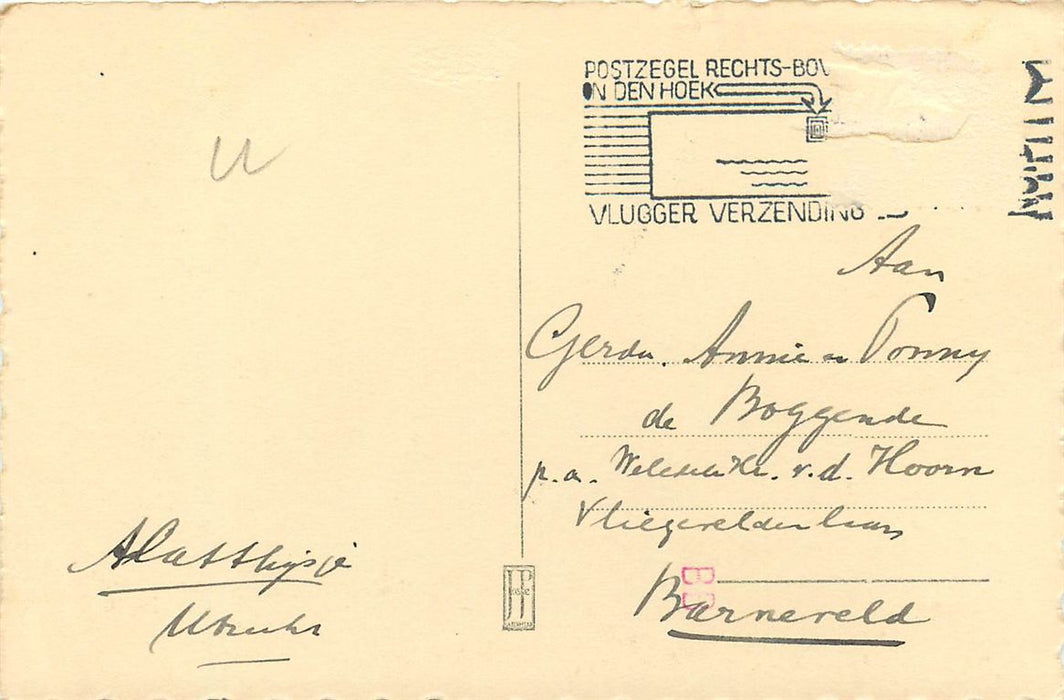 POSTZEGEL RECHTS-BOV
IN DEN HOEK
VLUGGER VERZENDING
U
Aan
Gerda, Annie en Tonny
de Boggende
p.a. v.d. Hoorn
Barneveld
Utrecht